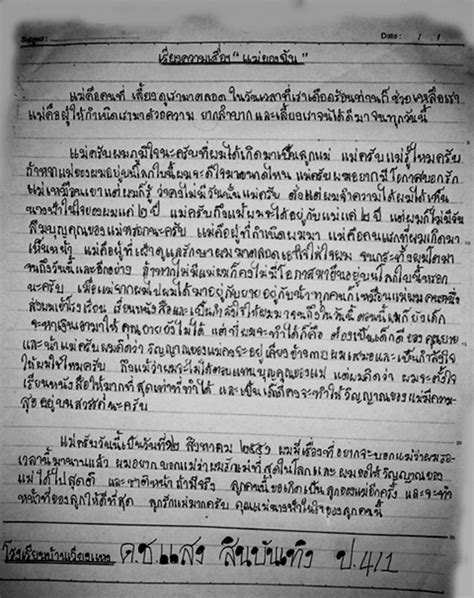 Subject: Date : / /
เรียงความเรื่อง "แม่ของฉัน"
แม่คือคนที่ เลี้ยงดูเรามาตลอด ในวันเวลาที่เราเดือดร้อนท่านก็ ช่วยเหลือเรา
แม่คือผู้ให้กำเนิดเรามาด้วยความ ยากลำบาก และเลี้ยงเราจนได้ดีมาจนทุกวันนี้
แม่ครับผมภูมิใจนะครับที่ผมได้เกิดมาเป็นลูกแม่ แม่ครับแม่รู้ไหมครับ
ถ้าหากแม่ของผมอยู่บนโลกใบนี้ผมจะดีใจมากขนาดไหน แม่ครับผมอยากมีโอกาสบอกรัก
แม่เหมือนเขาแต่ผมก็รู้ ว่าคงไม่มีวันนั้นแม่ครับ ตั้งแต่ผมจำความได้ผมได้เห็น
ผมแค่ ๒ ปี แม่ครับถึงแม้ผมจะได้อยู่กับแม่แค่ ๒ ปี แต่ผมก็ไม่มีวัน
ลืมบุญคุณของแม่หรอกนะครับ แม่คือผู้ที่กำเนิดผมมา แม่คือคนแรกที่ผมเกิดมา
เห็นหน้า แม่คือผู้ที่เฝ้าดูแลรักษาผมมาตลอดเอาใจใส่ใจผม จนกระทั่งผมโตมา
จนถึงวันนี้และอีกอย่าง ถ้าหากไม่มีแม่ผมก็คงไม่มีโอกาสมายืนอยู่บนโลกใบนี้หรอก
นะครับ เมื่อแม่จากผมไปผมได้มาอยู่กับยายอยู่กับน้าทุกคนก็เหมือนแม่ผมคนหนึ่ง
ส่งผมเข้าโรงเรียน เรียนหนังสือและเป็นกำลังใจให้ผมมาจนถึงในวันนี้ ตอนนี้ผมก็ยังเด็ก
จะหาเงินเอามาให้ คุณยายยังไม่ได้ แต่ที่ผมจะทำได้ก็คือ ต้องเป็นเด็กดี ของคุณยาย
และน้าแม่ครับผมคิดว่า วิญญาณของแม่คงจะอยู่เคียงข้างกายผมเสมอและเป็นกำลังใจ
ให้ผมใช่ไหมครับ ถึงแม้ว่าผมจะไม่ได้ตอบแทนบุญคุณของแม่ แต่ผมคิดว่า ผมจะตั้งใจ
เรียนหนังสือให้มากที่สุดเท่าที่ทำได้ และเป็นเด็กดีคงจะทำให้วิญญาณของแม่มีความ
สุขอยู่บนสวรรค์นะครับ
แม่ครับวันนี้เป็นวันที่๑๒ สิงหาคม ๒๕๕๖ ผมมีเรื่องที่อยากจะบอกแม่ว่าผมรอ
เวลานี้มานานแล้ว ผมอยากบอกแม่ว่าผมรักแม่ที่สุดในโลกและผมขอให้วิญญาณของ
แม่ได้ไปสู่สุคติ และชาติหน้าถ้ามีจริง ลูกคนนี้ขอเกิดเป็นลูกของแม่อีกครั้ง และจะทำ
หน้าที่ของลูกให้ดีที่สุด ลูกรักแม่มากครับ คุณแม่นางฟ้าในใจของลูกคนนี้
โรงเรียนบ้านเวียงแหง ด.ช.แสง สินบันเทิง ป.4/1